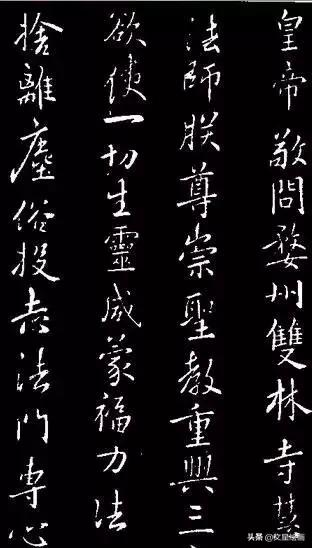 皇帝敬問婺州雙林寺慧
法師朕尊崇聖教重興三
欲使一切生靈咸蒙福力法
捨離塵俗投志法門專心
头条